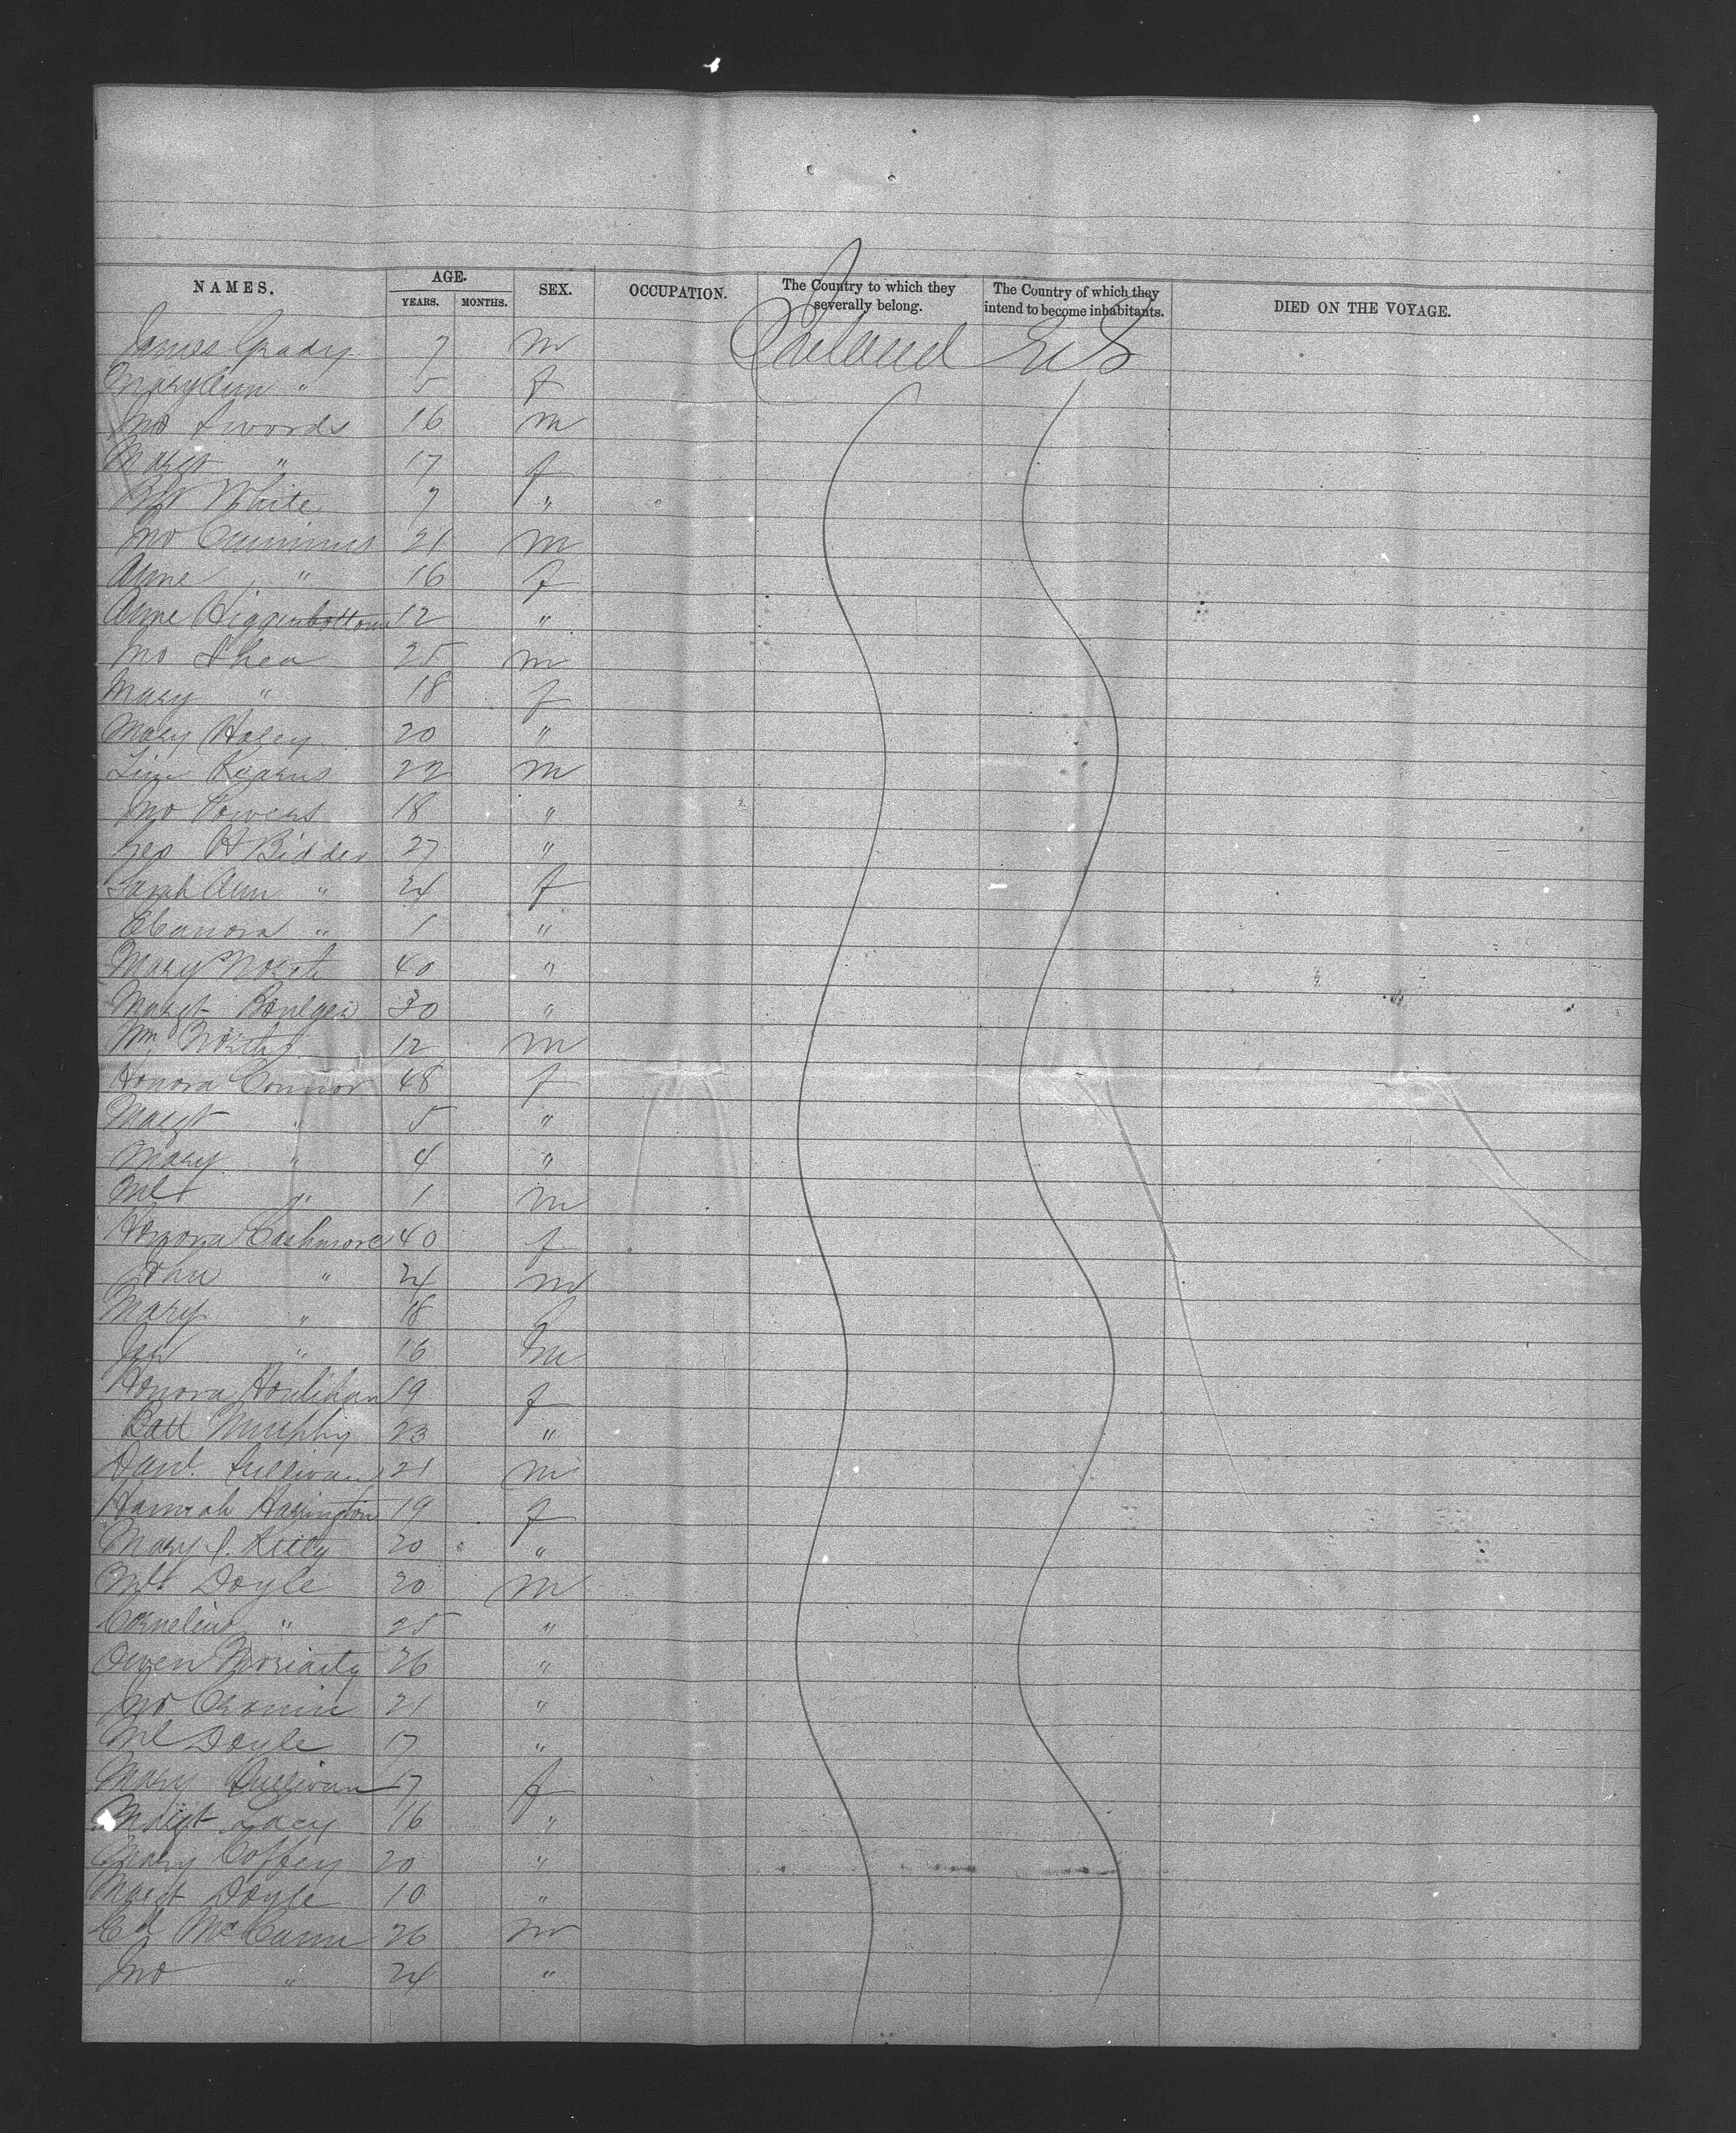 NAMES. AGE. SEX. OCCUPATION. The Country to which they severally belong. The Country of which they intend to become inhabitants. DIED ON THE VOYAGE.
YEARS. MONTHS.
James Grady 7 m Ireland U S
Mary Ann " 5 f
Jno Swords 16 m
Margt " 17 f
White 7 "
Jno Cummins 21 m
Anne " 16 f
Anne Higginbottom 12 "
Jno Shea 25 m
Mary " 18 f
Mary Haley 20 "
Tim Kearns 22 m
Jno Powers 18 "
Geo H Bidder 27 "
Sarah Ann " 24 f
Eleanora " 1 "
Mary North 40 "
Margt Boulger 30 "
Wm North 12 m
Honora Connor 48 f
Margt " 5 "
Mary " 4 "
Ml " 1 m
Honora Cashmore 40 f
John " 24 m
Mary " 18 f
Jas " 16 m
Honora Houlihan 19 f
Murphy 23 "
Danl. Sullivan 21 m
Hannah Harington 19 f
Mary J. Kelly 20 "
Doyle 20 m
Cornelius " 25 "
Owen Moriarty 26 "
Jno Cronin 21 "
Ml Doyle 17 "
Mary Sullivan 17 f
Margt Lacy 16 "
Mary Coffey 20 "
Margt Doyle 10 "
Ed McCunn 26 m
Jno " 24 "